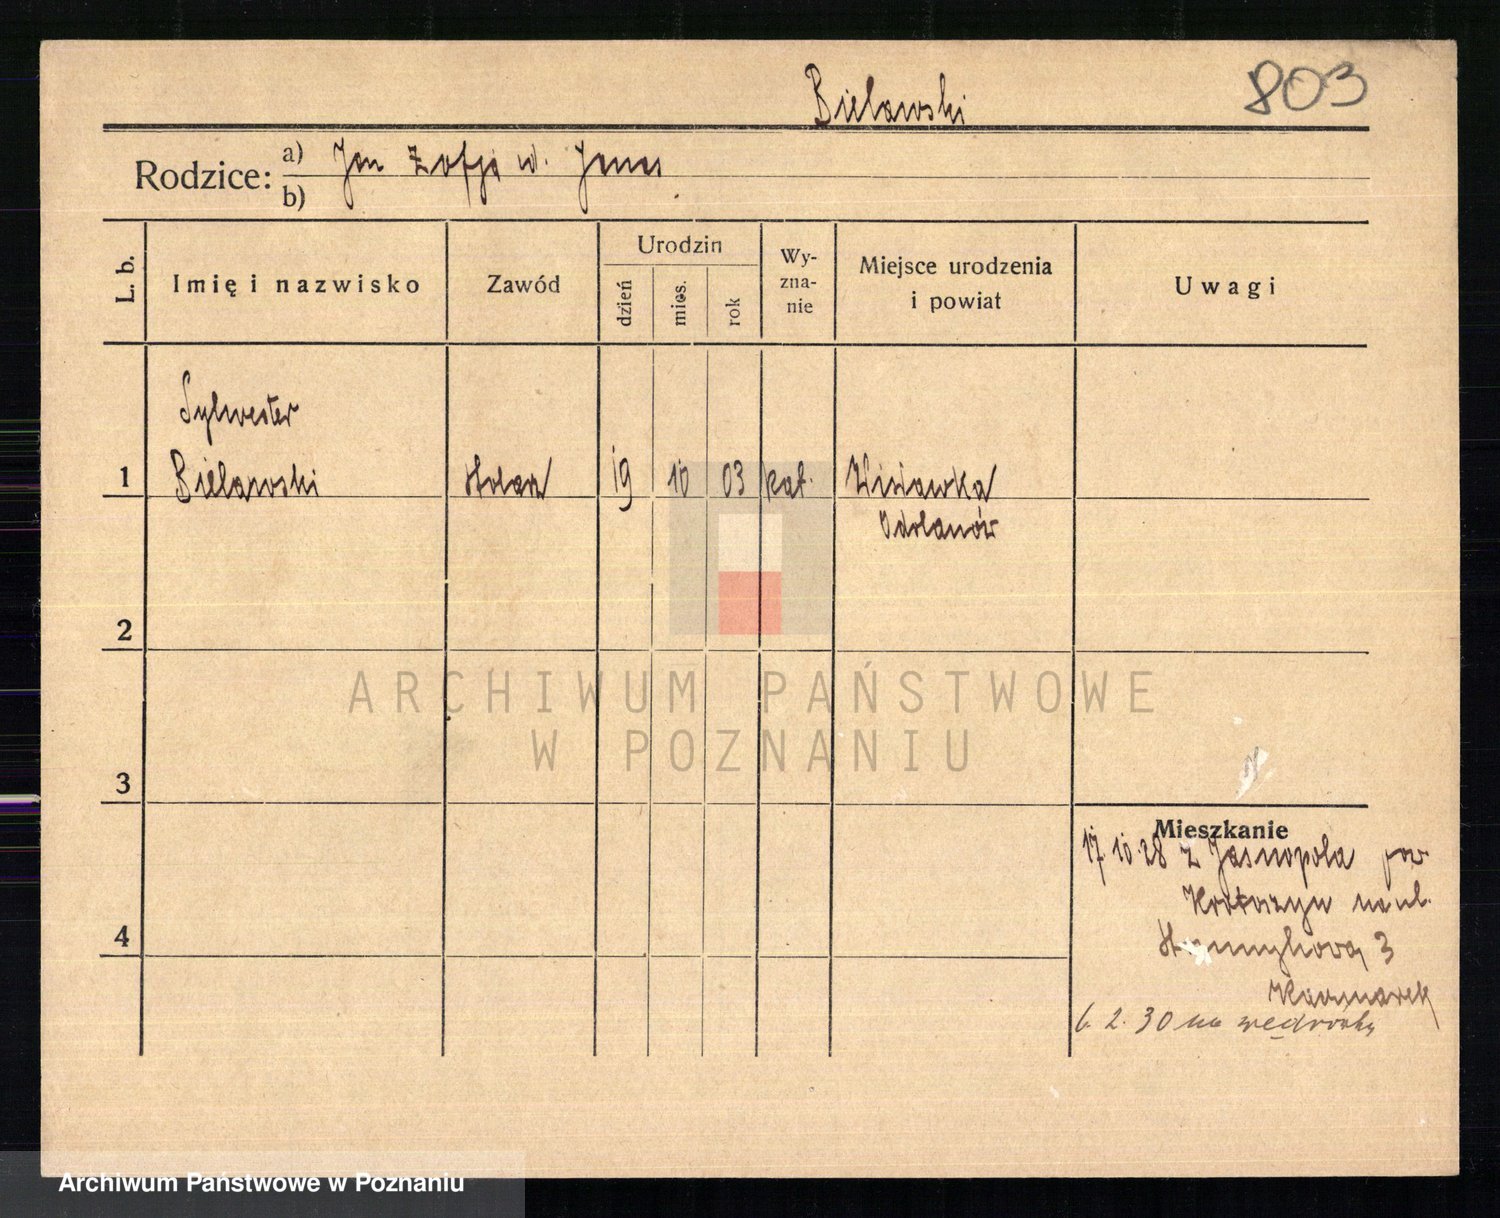 Bielawski
803
Rodzice: a) Jan Zofja w. Janas
b)
L. b.
Imię i nazwisko
Zawód
Urodzin
dzień
mies.
rok
Wy-
zna-
nie
Miejsce urodzenia
i powiat
Uwagi
Sylwester
1 Bielawski stolarz 19 10 03 kat.
Odolanów
2
ARCHIWUM PAŃSTWOWE
W POZNANIU
3
Mieszkanie
17.10.28 z Jasnopola pow
na ul.
3
Kaczmarek
6. 2. 30 na wędrówkę
4
Archiwum Państwowe w Poznaniu